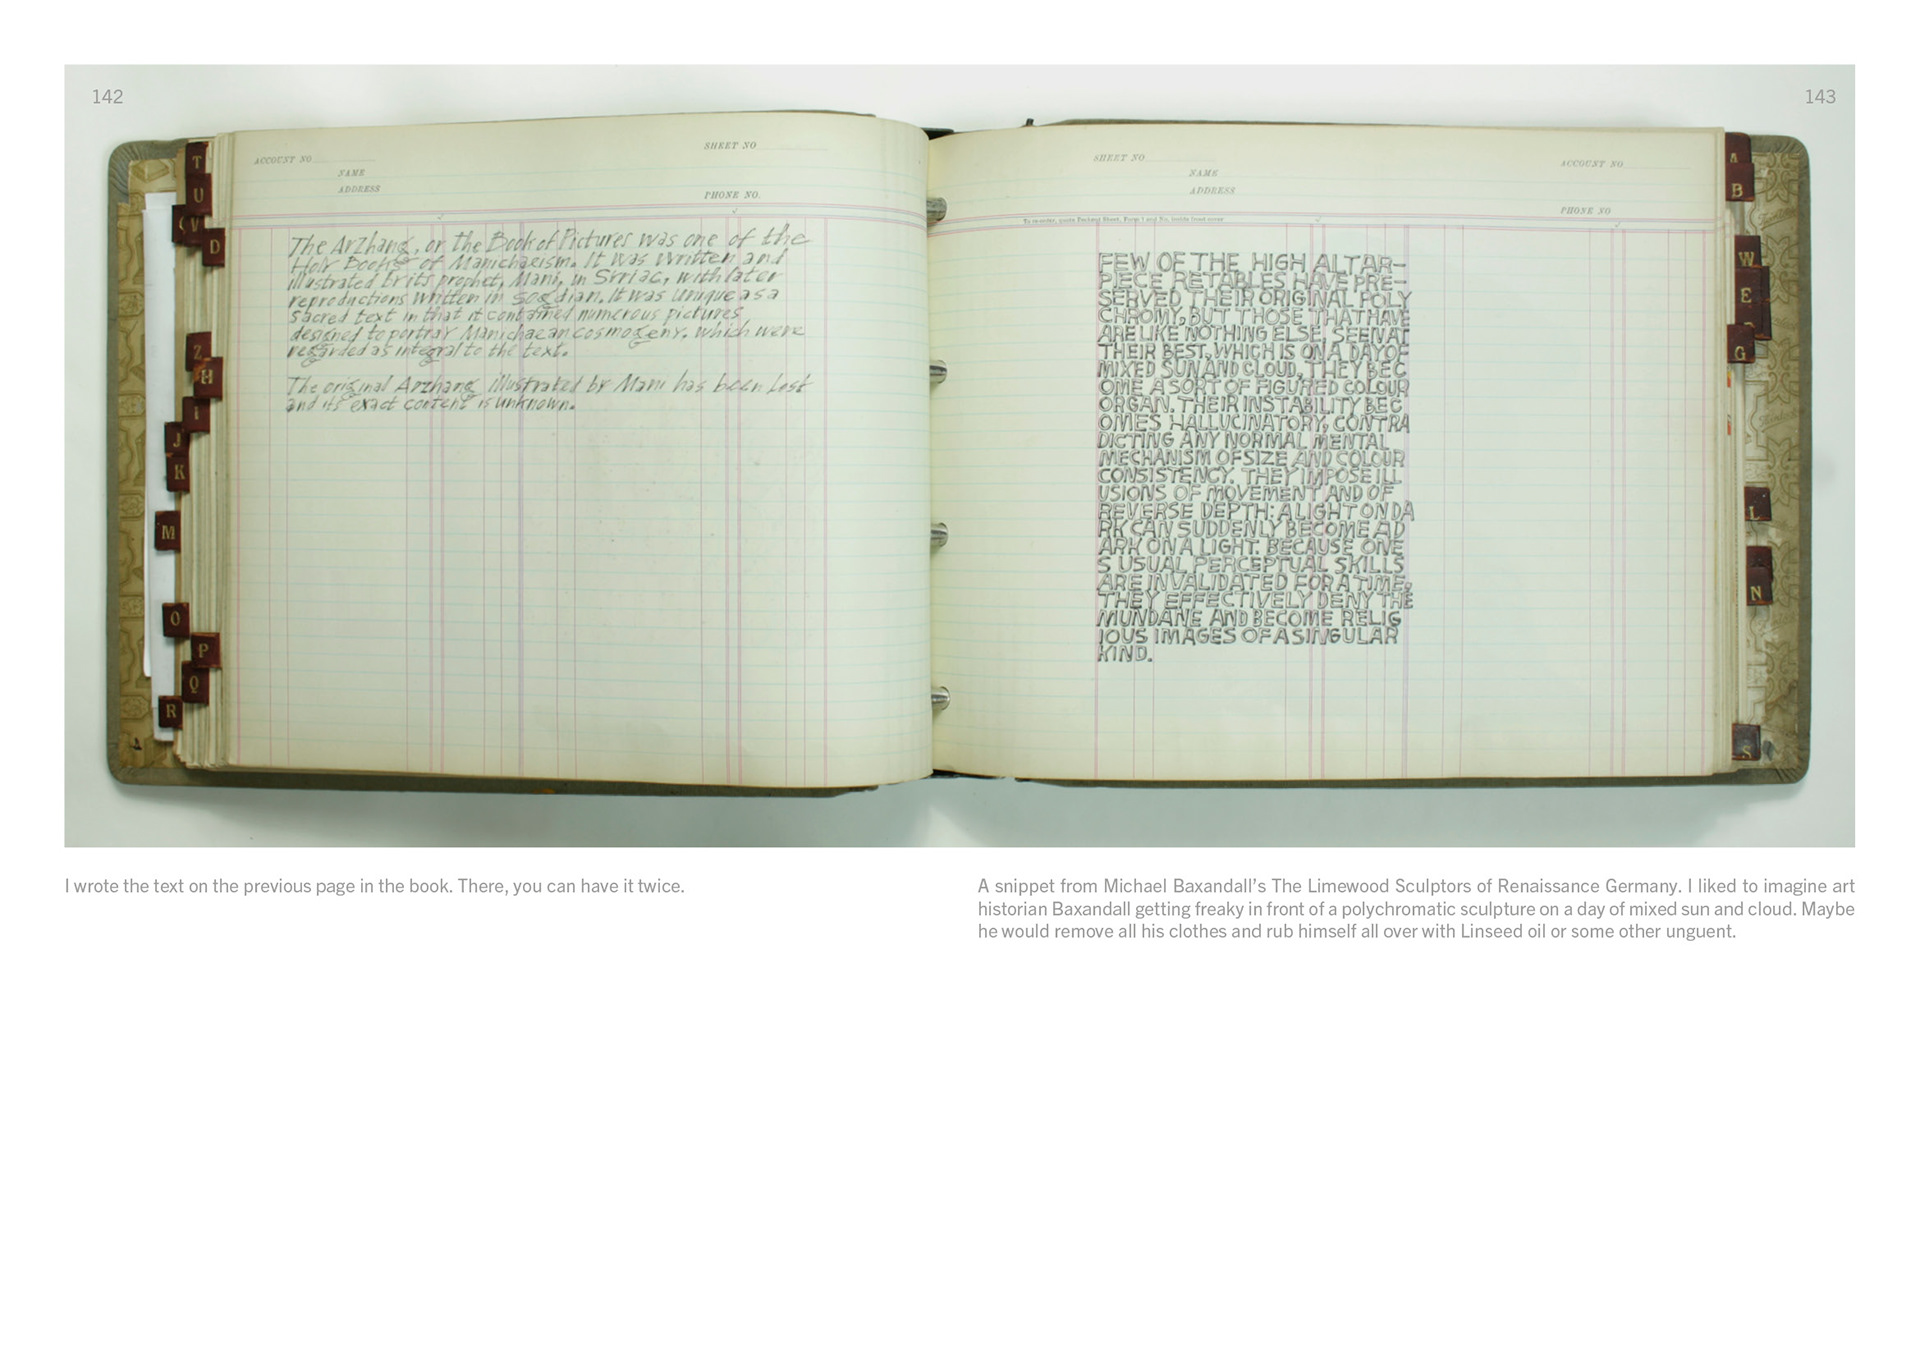 142
143
T
U
V
D
Z
H
I
J
K
M
O
P
Q
R
ACCOUNT NO
SHEET NO
NAME
ADDRESS
PHONE NO.
The Arzhang, or the Book of Pictures was one of the
Holy Books of Manichaeism. It was written and
illustrated by its prophet, Mani, in Syriac, with later
reproductions written in Sogdian. It was unique as a
sacred text in that it contained numerous pictures
designed to portray Manichaean cosmogeny, which were
regarded as integral to the text.
The original Arzhang illustrated by Mani has been lost
and its exact content is unknown.
SHEET NO
ACCOUNT NO
NAME
ADDRESS
PHONE NO
FEW OF THE HIGH ALTAR-
PIECE RETABLES HAVE PRE-
SERVED THEIR ORIGINAL POLY
CHROMY, BUT THOSE THAT HAVE
ARE LIKE NOTHING ELSE. SEEN AT
THEIR BEST, WHICH IS ON A DAY OF
MIXED SUN AND CLOUD, THEY BEC
OME A SORT OF FIGURED COLOUR
ORGAN. THEIR INSTABILITY BEC
OMES HALLUCINATORY, CONTRA
DICTING ANY NORMAL MENTAL
MECHANISM OF SIZE AND COLOUR
CONSISTENCY. THEY IMPOSE ILL
USIONS OF MOVEMENT AND OF
REVERSE DEPTH: A LIGHT ON DA
RK CAN SUDDENLY BECOME A D
ARK ON A LIGHT. BECAUSE ONE
S USUAL PERCEPTUAL SKILLS
ARE INVALIDATED FOR A TIME,
THEY EFFECTIVELY DENY THE
MUNDANE AND BECOME RELIG
IOUS IMAGES OF A SINGULAR
KIND.
A
B
W
E
G
L
N
S
I wrote the text on the previous page in the book. There, you can have it twice.
A snippet from Michael Baxandall’s The Limewood Sculptors of Renaissance Germany. I liked to imagine art
historian Baxandall getting freaky in front of a polychromatic sculpture on a day of mixed sun and cloud. Maybe
he would remove all his clothes and rub himself all over with Linseed oil or some other unguent.